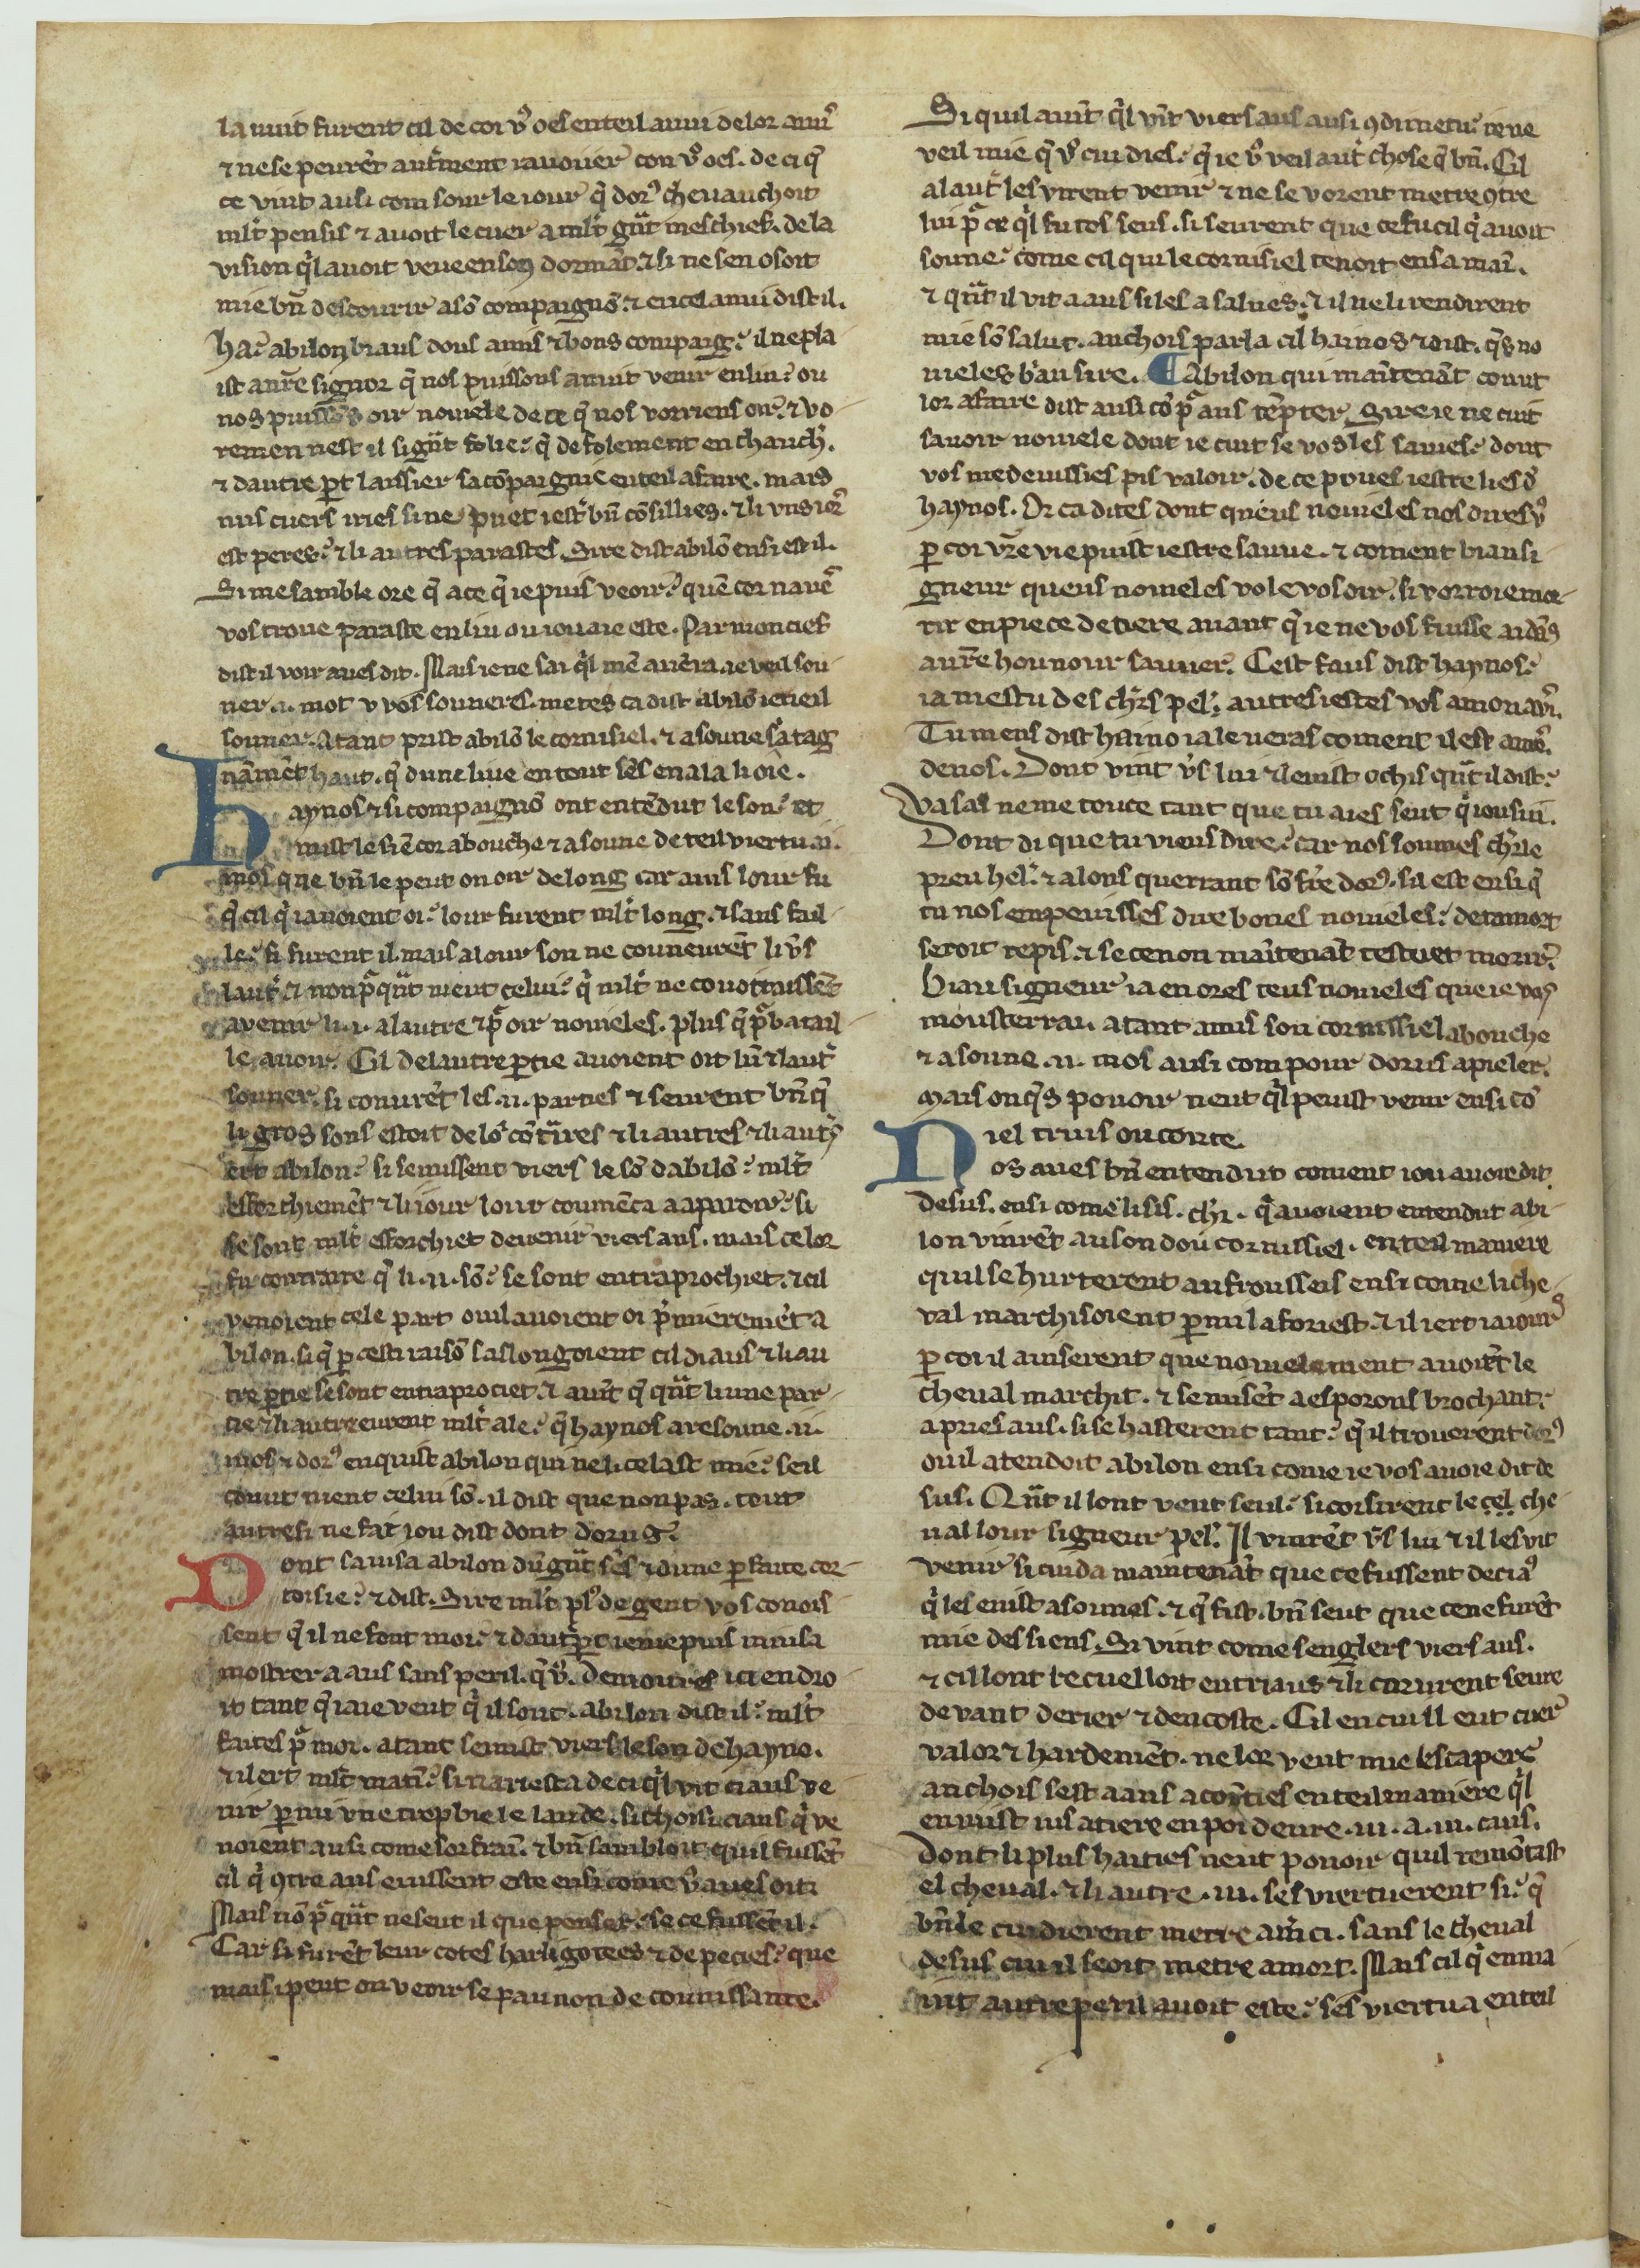 la nuit furent cil de coi vͦ oes enteil anui de lor ami᷒
⁊ ne se peurẽt aut̃ment rauoier con vͦ oes. de ci q̃
ce vint ausi com sour le iour q̃ dorꝰ cheuauchoit
ml̃t pensis ⁊ auoit le cuer a ml̃t gñt meschief. de la
vision q̃l auoit veue en son dormãt ⁊ si ne sen osoit
mie bñ descourir a sõ compaignõ. ⁊ en cel anui dist il.
ha. abilon biaus dous amis ⁊ bons compaig. il ne pla
ist a nr̃e signor q̃ nos puissons anuit venir en liu. ou
nos puissõs oir nouiele de ce q̃ nos vorriens oir. ⁊ vo
remen nest il si gñt folie. q̃ de folement enchauch᷒.
⁊ dautre p̱t laissier sa cõpaignie enteil afaire. mais
nus cuers iries si ne puet iestr̃ bñ cõsillies. ⁊ li vns ior᷒
est peres. ⁊ li autres parastes. Sire dist abilõ ensi est il.
Si me samble ore q̃ a ce q̃ ie puis veoir. quẽcor naue᷒
vos troue paraste en liu ou iou aie este. Par mon cief
dist il voir aues dit. Mais ie ne sai q̃l mẽ auẽra. ie veil sou
ner .i. mot v vos souneres. metes ca dist abilõ ie veil
souner. Atant prist abilõ le cornisiel. ⁊ a soune sã tag
nãmẽt haut. q̃ dune liue en tout sẽs en ala li oie.
Haynos ⁊ si compaignõ ont entẽdut le son. et
mist le siẽ cor a bouche ⁊ a soune de teil viertu .ii.
mos que bñ le peut on oir de long car auis lour fu
q̃ cil q̃ iauoient oi. lour furent ml̃t long. ⁊ sans fail
le. si furent il. mais a lour son ne couneurẽt li vñs
lautr̃ ⁊ non p̃ q̃nt nieut celui. q̃ ml̃t ne couoitaissẽt
a venir li .i. a lautre ⁊ p̃ oir nouieles. plus q̃ p̃ batail
le auoir. Cil de lautre p̱tie auoient oit lun ⁊ lautr̃
souner. si conurẽt les .ii. parties ⁊ seurent bñ q̃
li gros sons estoit de lor᷒ cõtraires ⁊ li autres ⁊ li autꝰ
ert abilon. si se missent viers le sõ dabilõ. ml̃t
efforchiemẽt ⁊ li iour lour coumẽca a aparoir. si
se sont ml̃t efforchiet de venir viers aus. mais ce lor
fu contraire q̃ li .ii. sõ. se sont entraprochiet. ⁊ cil
venoient cele part ou il auoient oi p̃mierement a
bilon. si q̃ p̱ cesti raisõ saslongoient cil diaus ⁊ li au
tre p̱tie se sont entraprociet. ⁊ auĩt q̃ q̃nt li une par
tie ⁊ li autre eurent ml̃t ale. q̃ haynos a resoune .ii.
mos ⁊ dorꝰ enquist abilon qui ne li celast mie. seil
conut nient celui sõ. il dist que non pas. tout
autresi ne fai iou dist dont dorus.
Dont sauisa abilon dun gñt sẽs ⁊ dune p̱faite cor
toisie. ⁊ dist. Sire ml̃t plꝰ de gent vos conois
sent q̃ il ne font moi. ⁊ daut̃ p̱t ie me puis miuls a
mostrer a aus sans peril. q̃ vͦ. Demoures ici endro
it tant q̃ iaie veut q̃ il sont. abilon dist il. ml̃t
faites p̃ moi. atant se mist viers le son de hayno.
⁊ il ert ml̃t matĩ. si nariesta de ci q̃l vit ciaus ve
nir p̱mi vne trop bie le lande. si choisi ciaus q̃ ve
noient ausi come soi frai᷒. ⁊ bñ sambloit quil fussẽt
cil q̃ ꝯtre aus euissent este ensi come vͦ aues oit.
Mais nõ p̃ q̃nt ne seut il que penser. se ce fussẽt il.
Car si furẽt leur cotes harligotees ⁊ de pecies. que
mais i peut on veoir se pau non de counissante.
Si quil auĩt q̃l vĩt viers aus ausi ꝯ dir netu᷒ ie ne
veil mie q̃ vͦ cuidies. q̃ ie vͦ veil autr̃ chose q̃ bñ. Cil
al aut̃ les virent venir ⁊ ne se vorent metre ꝯtre
lui p̃ ce q̃l fu tos seus. si seurent que ce fu cil q̃ auoit
soune. come cil qui le cornisiel tenoit en sa mai᷒.
⁊ q̃nt il vit a aus si les a salues. ⁊ il ne li rendirent
mie sõ salut. anchois parla cil hainos ⁊ dist. q̃s no
uieles biau sire. ¶ Abilon qui maĩtenãt conut
lor afaire dist ausi cõ p̃ aus tẽpter. Sire ie ne cuit
sauoir nouiele dont ie cuit se vos les saues. dont
vos me deuissies pis valoir. de ce poues iestre lies dͥ
haynos. Or ca dites dont queus nouieles nos dires vͦ
p̱ coi vr̃e vie puist iestre sauue. ⁊ coment biau si
gneur queus nouieles voleuos oir. si vorroie mor
rir en piece de tiere auant q̃ ie ne vos fuisse aidãs
a vr̃e hounour sauuer. Cest faus dist haynos.
ia mestu des ch᷒rs pel᷒. autres iestes vos a mon aui᷒.
Tu mens dist haino ia le veras coment il est ami᷒.
de nos. Dont vint vs̃ lui ⁊ leuist ochis q̃nt il dist.
vasal ne me touce tant que tu aies seut q̃ iou sui.
Dont di que tu viens dire. car nos soumes ch᷒r le
preu hel᷒. ⁊ alons querrant sõ frẽ dorꝰ. sil est ensi q̃
tu nos en peuisses dire bones nouieles. de ta mort
seroit repis. ⁊ se ce non maĩtenãt testuet morir.
Biau signeur ia en ores teus nouieles que ie vos
mousterrai. atant a mis son cornissiel a bouche
⁊ a soune .ii. mos ausi com pour dorus apieler.
Mais onq̃s pooir neut q̃l peuist venir ensi cõ
iel truis ou conte.
Nos aues bñ entendut coment iou auoie dit
desus. ensi come li sis. ch᷒r. q̃ auoient entendut abi
lon vinrẽt au son dou cornissiel. enteil maniere
quil se hurterent au frousseis ensi come li che
val marchisoient p̱mi la foriest. ⁊ il iert ia iours
p̱ coi il auiserent que nouielement auoiẽt le
cheual marchit. ⁊ se misẽt a esporons brochant.
apries aus. si se hasterent tant. q̃ il trouerent dorꝰ
ou il atendoit abilon ensi come ie vos auoie dit de
sus. Q̃nt il lont veut seul. si coisirent le cel che
ual lour signeur pel᷒. Il vinrẽt vs̃ lui ⁊ il les vit
venir si cuida maintenãt que ce fussent de ciaꝰ
q̃ les euist a sounes. ⁊ q̃ fist. bñ seut que ce ne furẽt
mie des siens. Si vint come senglers viers aus.
⁊ cil lont recuelloit entriaus ⁊ li corurent seure
devant derier ⁊ dencoste. Cil en cui il eut cuer
valor ⁊ hardemẽt. ne lor veut mie escaper.
anchois sest a aus acoĩties enteil maniere q̃l
en mist ius a tiere en poi deure .iii. a .iii. caus.
Dont li plus haities neut pooir quil remõtast
el cheual. ⁊ li autre .iii. ses viertuerent si. q̃
bñ le cuidierent metre a mĩci. sans le cheual
desus cui il seoit metre a mort. Mais cil q̃ en ma
int autre peril auoit este. ses viertua enteil